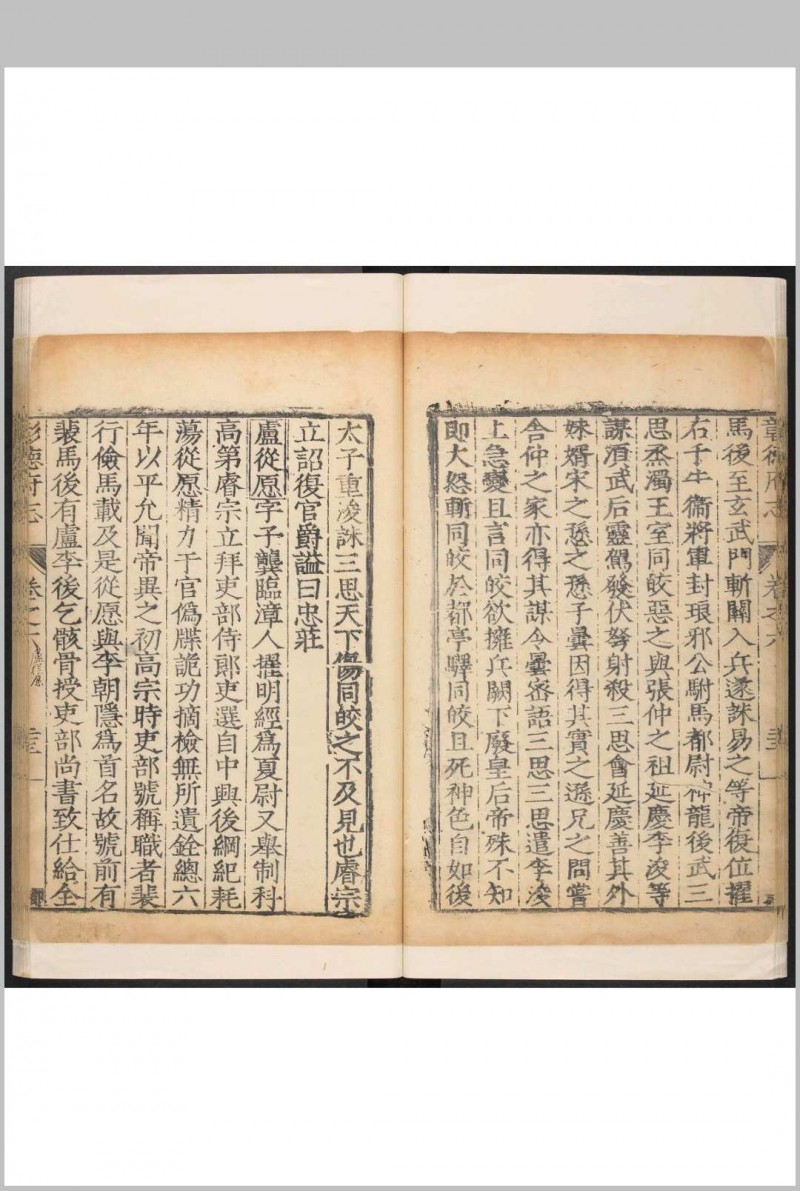 彰德府志 卷之六
馬後至玄武門斬關入兵遂誅易之等帝復位擢
右千牛衞將軍封琅邪公駙馬都尉神龍後武三
思烝濁王室同皎惡之與張仲之祖延慶李浚等
謀須武后靈駕發伏弩射殺三思會延慶善其外
妹婿宋之愻之愻子曇因得其實之遜兄之問嘗
舍仲之家亦得其謀令曇密語三思三思遣李浚
上急變且言同皎欲擁兵闕下廢皇后帝殊不知
即大怨斬同皎於都亭驛同皎且死神色自如後
太子重浚誅三思天下傷同皎之不及見也睿宗
立詔復官爵謚曰忠莊
盧從愿字子龔臨漳人擢明經爲夏尉又舉制科
高第睿宗立拜吏部侍郎吏選自中興後綱紀耗
蕩從愿精力于官偽牒詭功摘檢無所遺銓總六
年以平允聞帝異之初高宗時吏部號稱職者裴
行儉馬載及是從愿與李朝隱爲首名故號前有
裴馬後有盧李後乞骸骨授吏部尚書致仕給全
彰德府志 卷之六